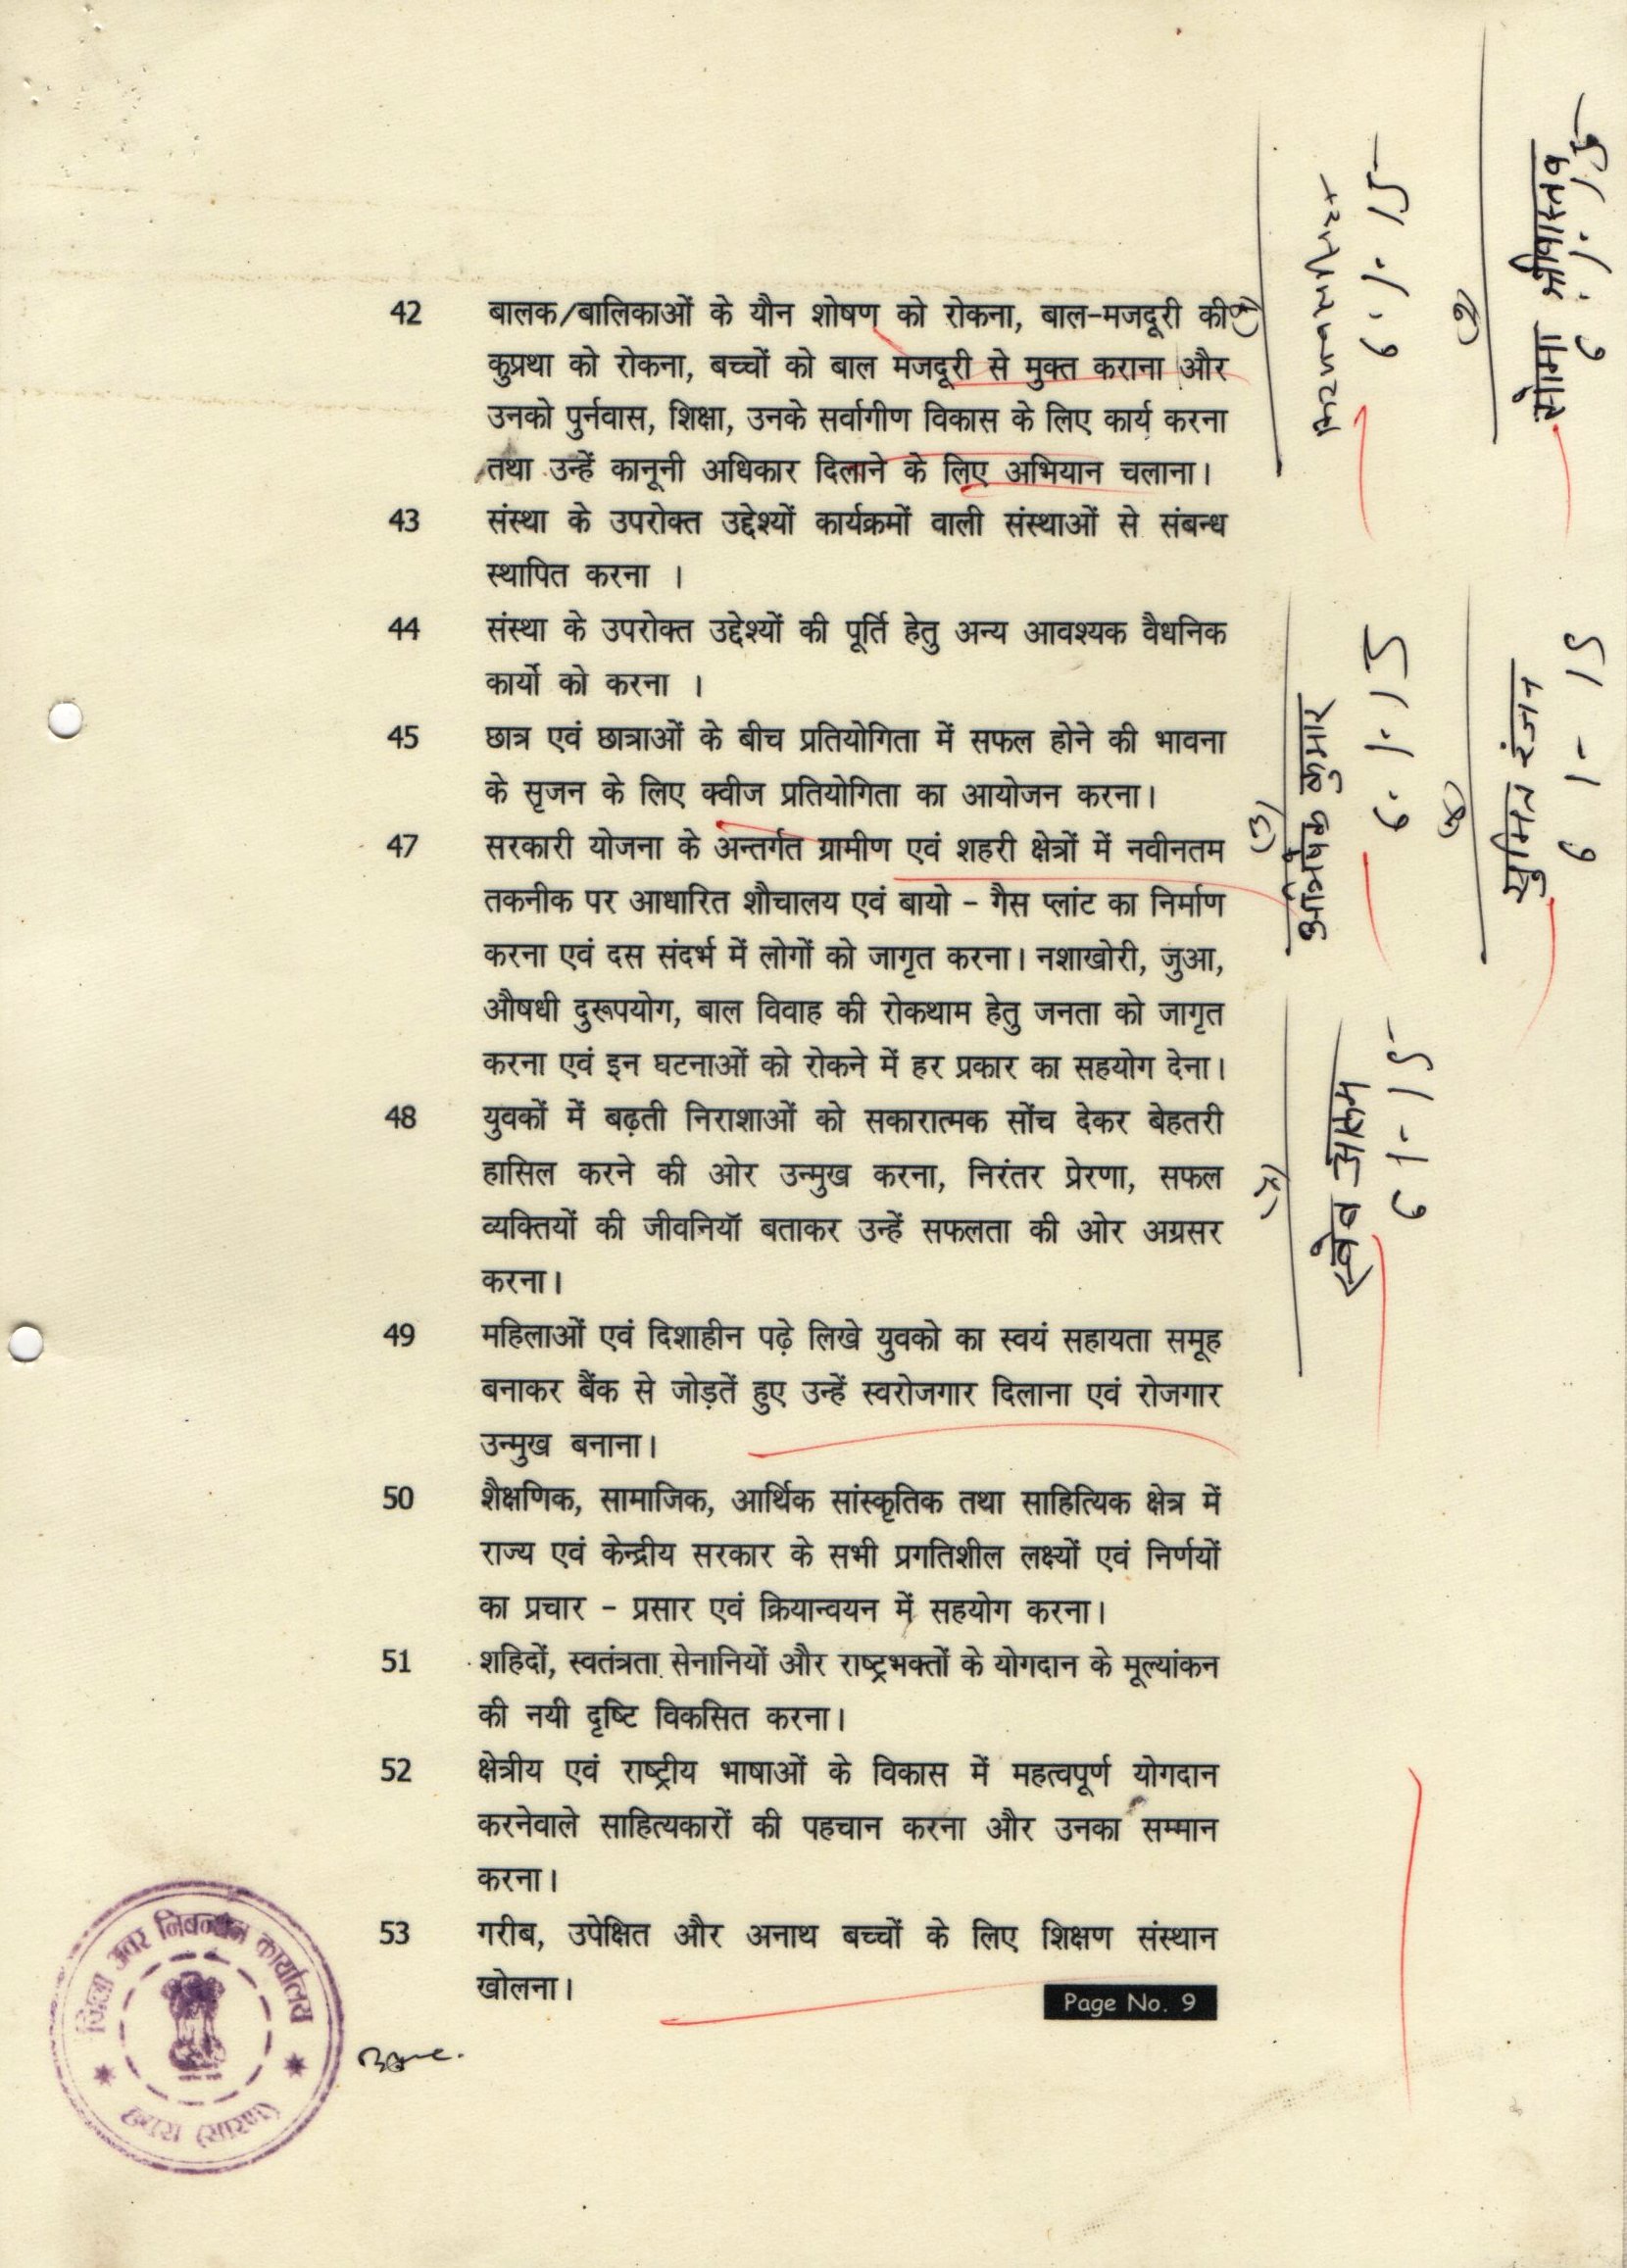 42 बालक/बालिकाओं के यौन शोषण को रोकना, बाल-मजदूरी की
कुप्रथा को रोकना, बच्चों को बाल मजदूरी से मुक्त कराना और
उनको पुर्नवास, शिक्षा, उनके सर्वागीण विकास के लिए कार्य करना
तथा उन्हें कानूनी अधिकार दिलाने के लिए अभियान चलाना।
43 संस्था के उपरोक्त उद्देश्यों कार्यक्रमों वाली संस्थाओं से संबन्ध
स्थापित करना ।
44 संस्था के उपरोक्त उद्देश्यों की पूर्ति हेतु अन्य आवश्यक वैधनिक
कार्यो को करना ।
45 छात्र एवं छात्राओं के बीच प्रतियोगिता में सफल होने की भावना
के सृजन के लिए क्वीज प्रतियोगिता का आयोजन करना।
47 सरकारी योजना के अन्तर्गत ग्रामीण एवं शहरी क्षेत्रों में नवीनतम
तकनीक पर आधारित शौचालय एवं बायो - गैस प्लांट का निर्माण
करना एवं दस संदर्भ में लोगों को जागृत करना। नशाखोरी, जुआ,
औषधी दुरूपयोग, बाल विवाह की रोकथाम हेतु जनता को जागृत
करना एवं इन घटनाओं को रोकने में हर प्रकार का सहयोग देना।
48 युवकों में बढ़ती निराशाओं को सकारात्मक सोंच देकर बेहतरी
हासिल करने की ओर उन्मुख करना, निरंतर प्रेरणा, सफल
व्यक्तियों की जीवनियॉ बताकर उन्हें सफलता की ओर अग्रसर
करना।
49 महिलाओं एवं दिशाहीन पढ़े लिखे युवको का स्वयं सहायता समूह
बनाकर बैंक से जोड़तें हुए उन्हें स्वरोजगार दिलाना एवं रोजगार
उन्मुख बनाना।
50 शैक्षणिक, सामाजिक, आर्थिक सांस्कृतिक तथा साहित्यिक क्षेत्र में
राज्य एवं केन्द्रीय सरकार के सभी प्रगतिशील लक्ष्यों एवं निर्णयों
का प्रचार - प्रसार एवं क्रियान्वयन में सहयोग करना।
51 शहिदों, स्वतंत्रता सेनानियों और राष्ट्रभक्तों के योगदान के मूल्यांकन
की नयी दृष्टि विकसित करना।
52 क्षेत्रीय एवं राष्ट्रीय भाषाओं के विकास में महत्वपूर्ण योगदान
करनेवाले साहित्यकारों की पहचान करना और उनका सम्मान
करना।
53 गरीब, उपेक्षित और अनाथ बच्चों के लिए शिक्षण संस्थान
खोलना।
Page No. 9
जिला अवर निबन्धन कार्यालय
छपरा (सारण)
6.1.15
सोमा श्रीवास्तव
6.1.15
अभिषेक कुमार
6.1.15
सुमित रंजन
6 1- 15
आलम
6-1-15